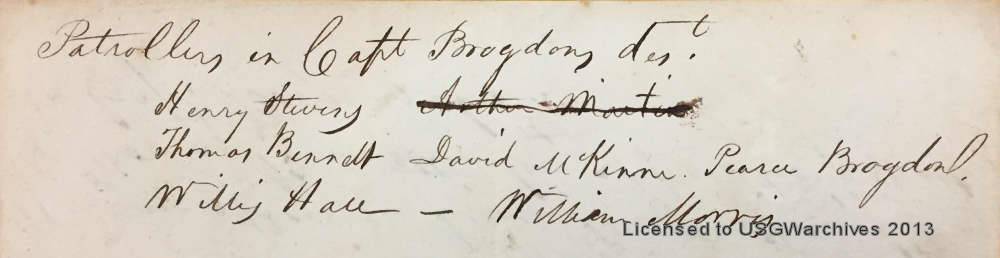 Patrollers in Capt Brogdons dist.
Henry Stevens Arthur Martin
Thomas Bennett David McKinne. Pearce Brogdon.
Willis Hall — William Morris
Licensed to USGWarchives 2013